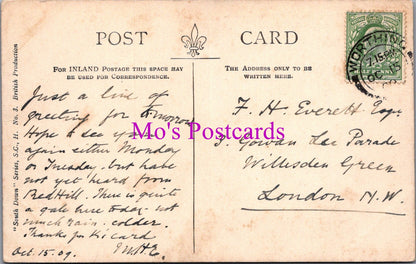 POST CARD
FOR INLAND POSTAGE THIS SPACE MAY
BE USED FOR CORRESPONDENCE.
THE ADDRESS ONLY TO BE
WRITTEN HERE.
"South Down" Series, S.C., H. No. 1. British Production
WORTHING
7.15 PM
OC 15
HALFPENNY
Just a line of
greeting for tomorrow
Hope to see you
again either Monday
or Tuesday, but have
not yet heard from
RedHill. There is quite
a gale here today. not
much rain, colder.
Thanks for P.c card
Oct. 15. 09.
F. H. Everett Esq.
3. Gowan Lea Parade
Willesden Green
London N.W.
Mo's Postcards